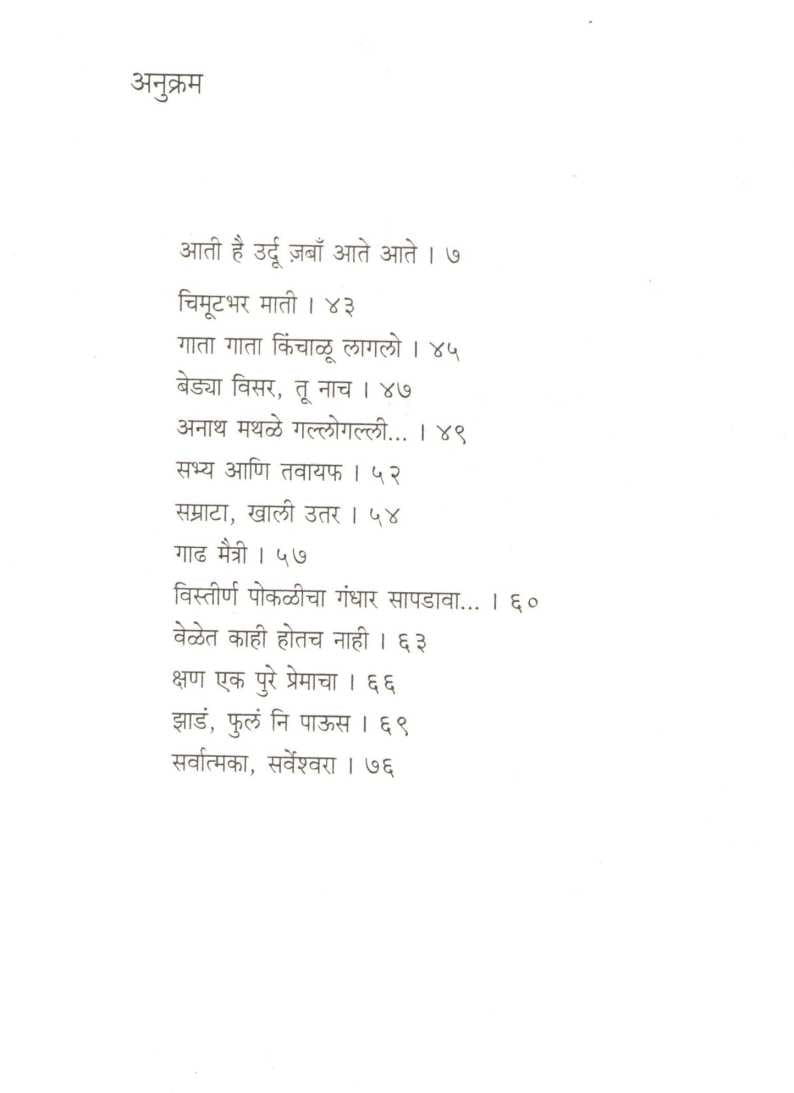 अनुक्रम
आती है उर्दू ज़बाँ आते आते । ७
चिमूटभर माती । ४३
गाता गाता किंचाळू लागलो । ४५
बेड्या विसर, तू नाच । ४७
अनाथ मथळे गल्लोगल्ली... । ४९
सभ्य आणि तवायफ । ५२
सम्राटा, खाली उतर । ५४
गाढ मैत्री । ५७
विस्तीर्ण पोकळीचा गंधार सापडावा... । ६०
वेळेत काही होतच नाही । ६३
क्षण एक पुरे प्रेमाचा । ६६
झाडं, फुलं नि पाऊस । ६९
सर्वात्मका, सर्वेश्वरा । ७६